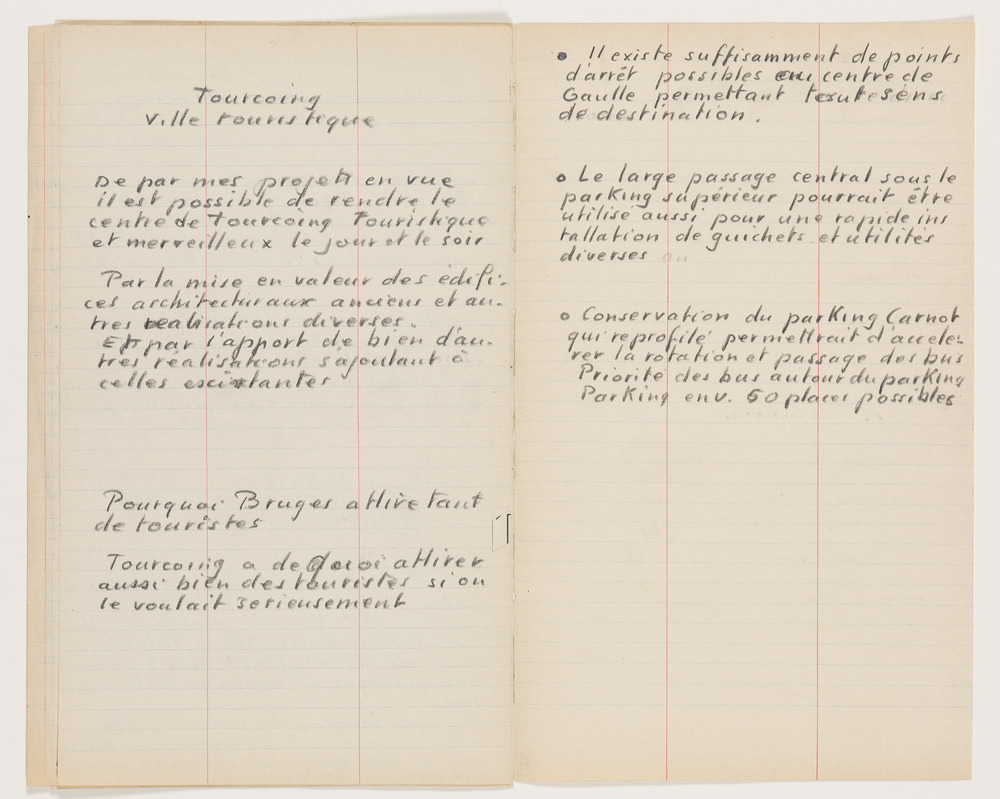 Tourcoing
Ville touristique
De par mes projets en vue
il est possible de rendre le
centre de Tourcoing Touristique
et merveilleux le jour et le soir
Par la mise en valeur des édifi-
ces architecturaux anciens et au-
tres realisations diverses.
Et par l'apport de bien d'au-
tres réalisations s'ajoutant à
celles existantes
Pourquoi Bruges attire tant
de touristes
Tourcoing a de quoi attirer
aussi bien des touristes si on
le voulait serieusement
• Il existe suffisamment de points
d'arrêt possibles au centre de
Gaulle permettant tout sens
de destination.
• Le large passage central sous le
parking supérieur pourrait être
utilisé aussi pour une rapide ins
tallation de guichets et utilités
diverses
• Conservation du parking Carnot
qui reprofilé permettrait d'accele-
rer la rotation et passage des bus
Priorité des bus autour du parking
Parking env. 50 places possibles